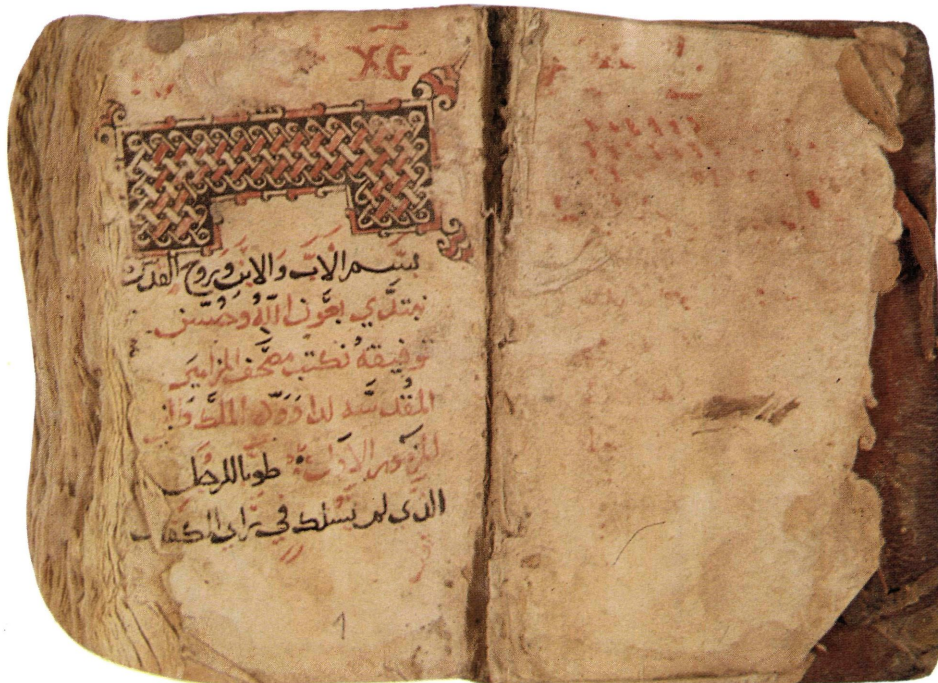 ⲬⲤ
بسم الاب والابن وروح القدس
نبتدي بعون الله وحسن
توفيقه نكتب مصحف المزامير
المقدسه لداوود الملك
المزمور الاول طوبا للرجل
الدي لم يسلك في راي
1